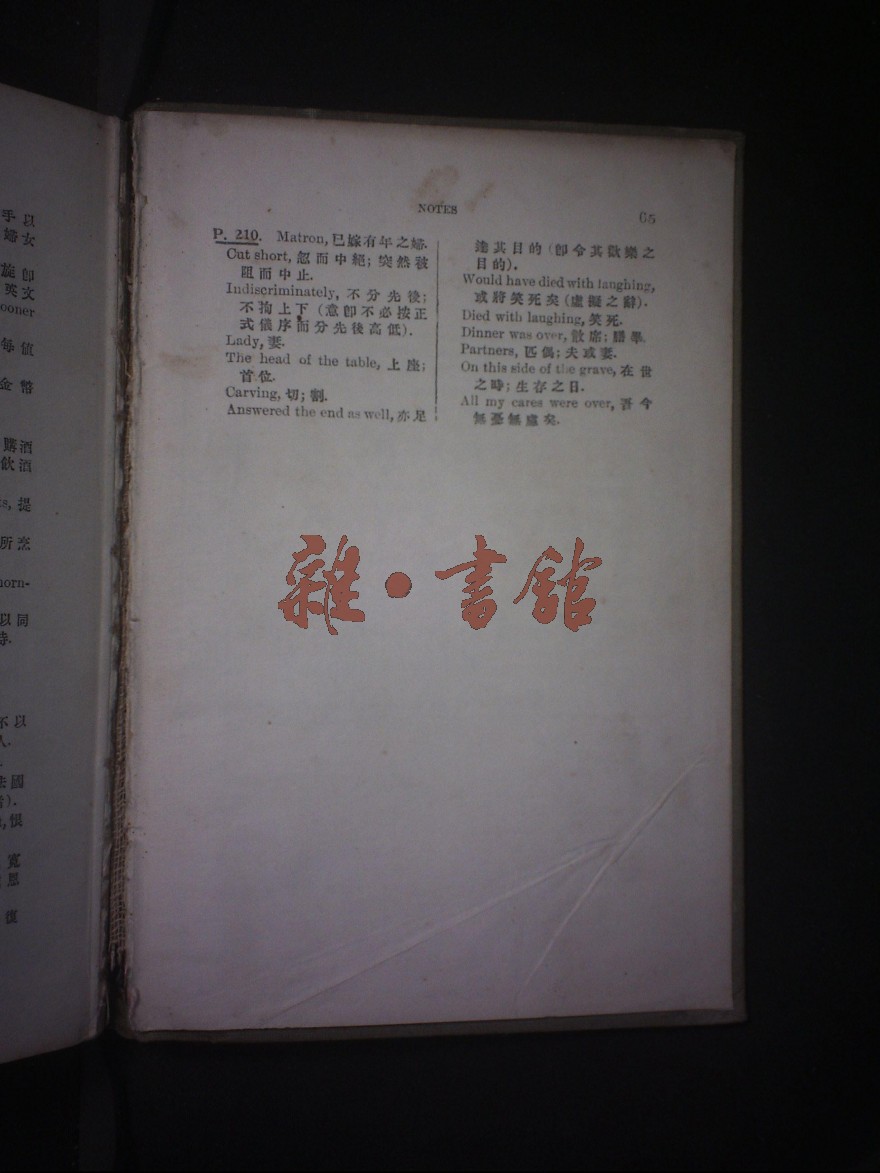 NOTES
65
P. 210. Matron, 已嫁有年之婦.
Cut short, 忽而中絕; 突然被
阻而中止.
Indiscriminately, 不分先後;
不拘上下 (意卽不必按正
式儀序而分先後高低).
Lady, 妻.
The head of the table, 上座;
首位.
Carving, 切; 割.
Answered the end as well, 亦足
達其目的 (卽令其歡樂之
目的).
Would have died with laughing,
或將笑死矣 (虛擬之辭).
Died with laughing, 笑死.
Dinner was over, 散席; 膳畢.
Partners, 匹偶; 夫或妻.
On this side of the grave, 在世
之時; 生存之日.
All my cares were over, 吾今
無憂無慮矣.
雜·書館
手以
婦女
旋卽
英文
ooner
每値
金幣
購酒
飲酒
s, 提
所烹
horn-
以同
待.
不以
人.
法國
).
, 恨
寬
恩
復